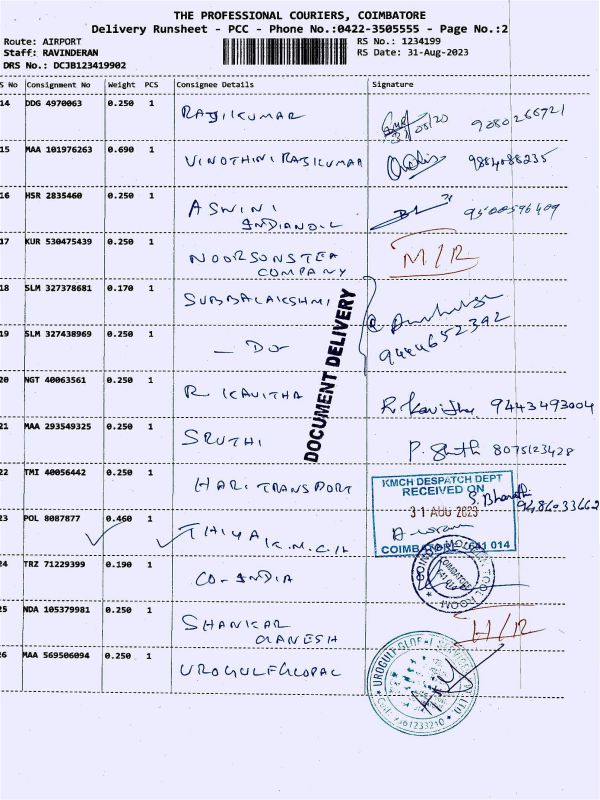 THE PROFESSIONAL COURIERS, COIMBATORE
Delivery Runsheet - PCC - Phone No.:0422-3505555 - Page No.:2
Route: AIRPORT RS No.: 1234199
Staff: RAVINDERAN RS Date: 31-Aug-2023
DRS No.: DCJB123419902
S No Consignment No Weight PCS Consignee Details Signature
14 DDG 4970063 0.250 1 RAJIKUMAR 31/08/20 9080266721
15 MAA 101976263 0.690 1 VINOTHINI RAJIKUMAR 9884088235
16 HSR 2835460 0.250 1 ASWINI 9500596409
INDIANOIL
17 KUR 530475439 0.250 1 NOORSONSTEA M/R
COMPANY
18 SLM 327378681 0.170 1 SUBBALAKSHMI
19 SLM 327438969 0.250 1 - DO 9444652342
DOCUMENT DELIVERY
20 NGT 40063561 0.250 1 R KAVITHA R. Kavitha 9443493004
21 MAA 293549325 0.250 1 SRUTHI P. Sruthi 8075123428
22 TMI 40056442 0.250 1 HARI TRANSPORT S. Bharathi
KMCH DESPATCH DEPT
RECEIVED ON
31 AUG 2023
COIMBATORE - 641 014
23 POL 8087877 0.460 1 THIYA K.M.C.H
24 TRZ 71229399 0.190 1 CO-INDIA
25 NDA 105379981 0.250 1 SHANKAR H/R
GANESH
26 MAA 569506094 0.250 1 UROGULFGLOPAL